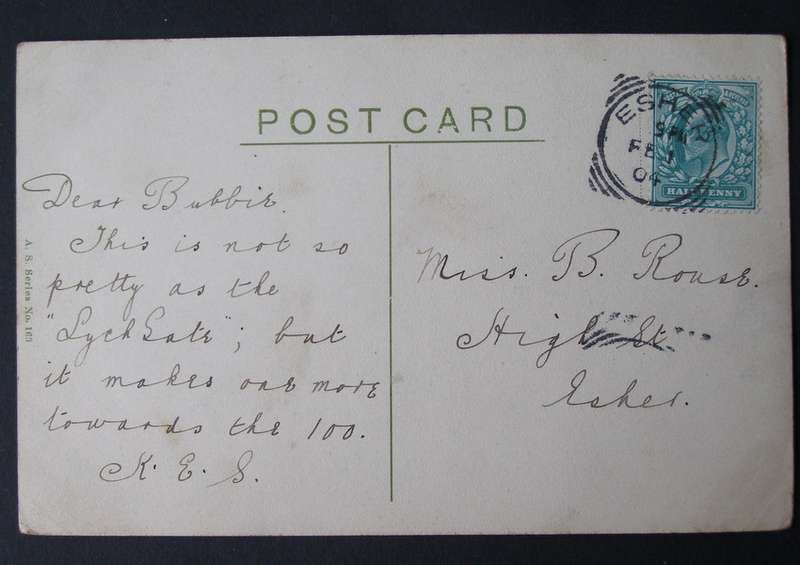 POST CARD
Dear Bubbie.
This is not so
pretty as the
"Lych Gate"; but
it makes one more
towards the 100.
K. E. S.
A. S. Series No. 163
Miss. B. Rouse.
High St
Esher.
ESHER
FE 1
04
HALFPENNY